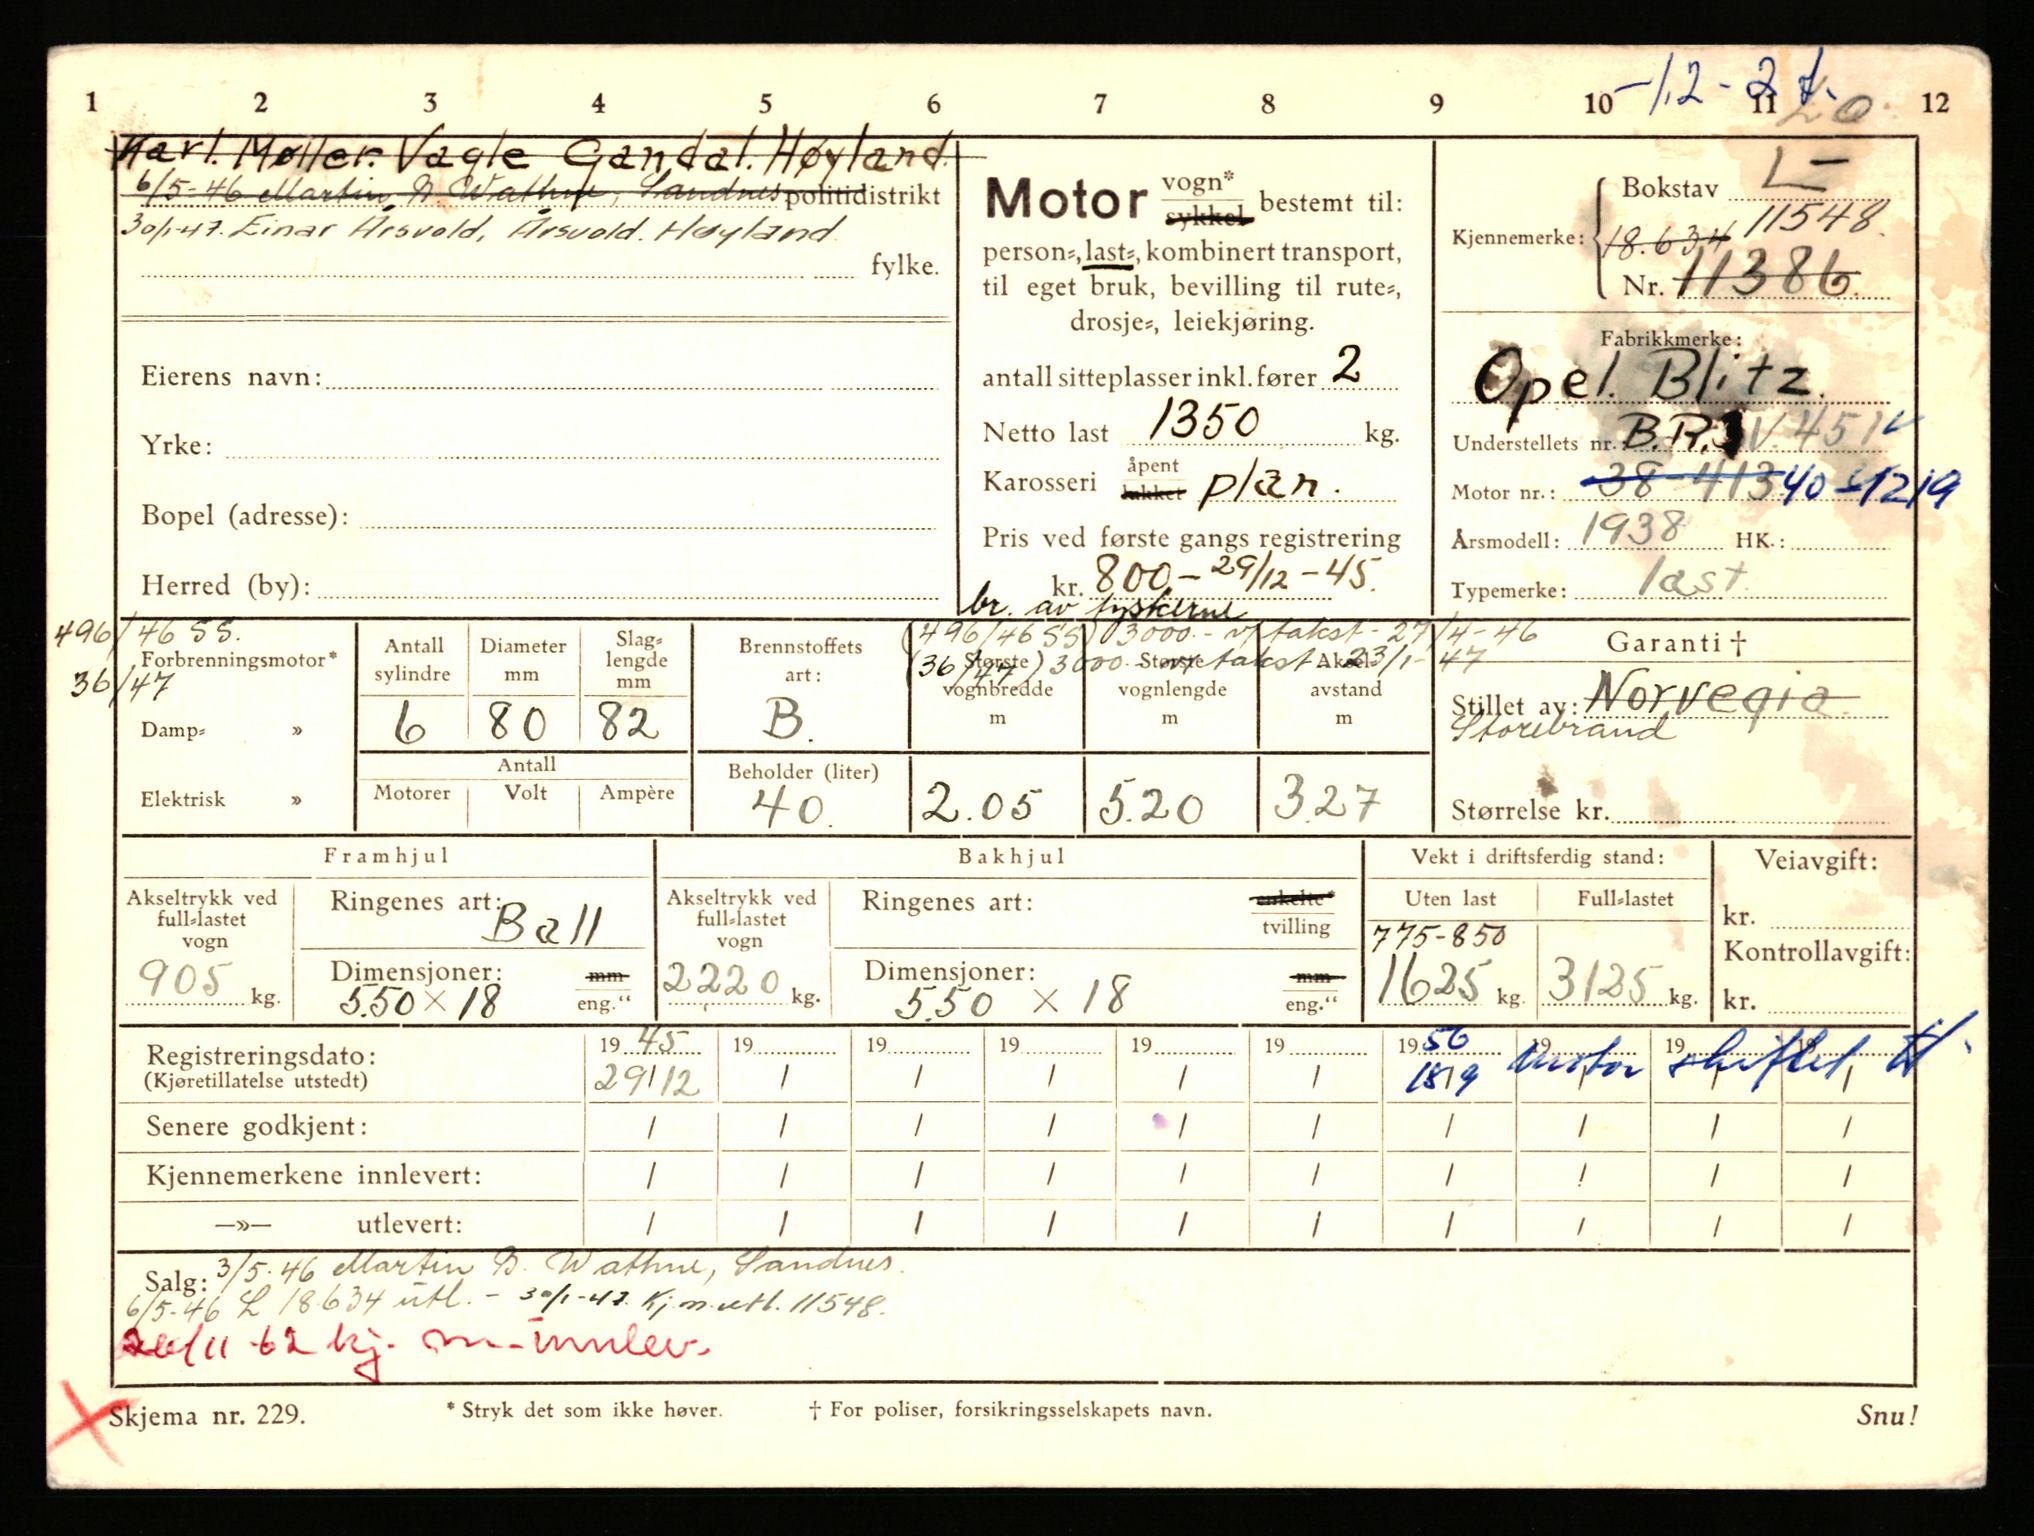 -12-2
1 2 3 4 5 6 7 8 9 10 11 12
Karl. Møller. Vagle Gandal. Høyland.
6/5-46 Martin B. Wathne, Sandnes politidistrikt
30/1-47. Einar Årsvold, Årsvold. Høyland
fylke.
Eierens navn:
Yrke:
Bopel (adresse):
Herred (by):
Motor vogn* sykkel bestemt til:
person-, last-, kombinert transport,
til eget bruk, bevilling til rute-,
drosje-, leiekjøring.
antall sitteplasser inkl. fører 2
Netto last 1350 kg.
Karosseri åpent lukket plan.
Pris ved første gangs registrering
kr. 800.- 29/12-45.
br. av tyskerne
Bokstav L-
Kjennemerke: 18.634 11548.
Nr. 11386.
Fabrikkmerke:
Opel. Blitz.
Understellets nr. B.R. V. 451
Motor nr.: 38-413 40-51219
Årsmodell: 1938 HK.:
Typemerke: last.
496/46 SS. (496/46 SS) 3000.- v/ takst - 27/4-46
36/47 (36/47) 3000.- v/ takst 23/1-47
Forbrenningsmotor*
Damp- »
Elektrisk »
Antall sylindre 6
Diameter mm 80
Slag-lengde mm 82
Antall
Motorer Volt Ampère
Brennstoffets art: B.
Beholder (liter) 40.
Største vognbredde m 2.05
Største vognlengde m 5.20
Aksel-avstand m 3.27
Garanti †
Stillet av: Norvegia.
Storebrand
Størrelse kr.
Framhjul
Akseltrykk ved full-lastet vogn 905 kg.
Ringenes art: Ball
Dimensjoner: 5.50 × 18 mm eng."
Bakhjul
Akseltrykk ved full-lastet vogn 2220 kg.
Ringenes art: enkelte* tvilling
Dimensjoner: 5.50 × 18 mm eng."
Vekt i driftsferdig stand:
Uten last 775-850 1625 kg.
Full-lastet 3125 kg.
Veiavgift:
kr.
Kontrollavgift:
kr.
Registreringsdato: 19 45 19 19 19 19 19 19 56 19 19 19
(Kjøretillatelse utstedt) 29/12 / / / / / 18/9 Motor skiftet til
Senere godkjent: / / / / / / / / / /
Kjennemerkene innlevert: / / / / / / / / / /
—»— utlevert: / / / / / / / / / /
Salg: 3/5-46 Martin B. Wathne, Sandnes.
6/5-46 L 18634 utl. - 30/1-47. Kj.m.utl. 11548.
26/11-62 kj. m-innlev.
Skjema nr. 229. * Stryk det som ikke høver. † For poliser, forsikringsselskapets navn. Snu!